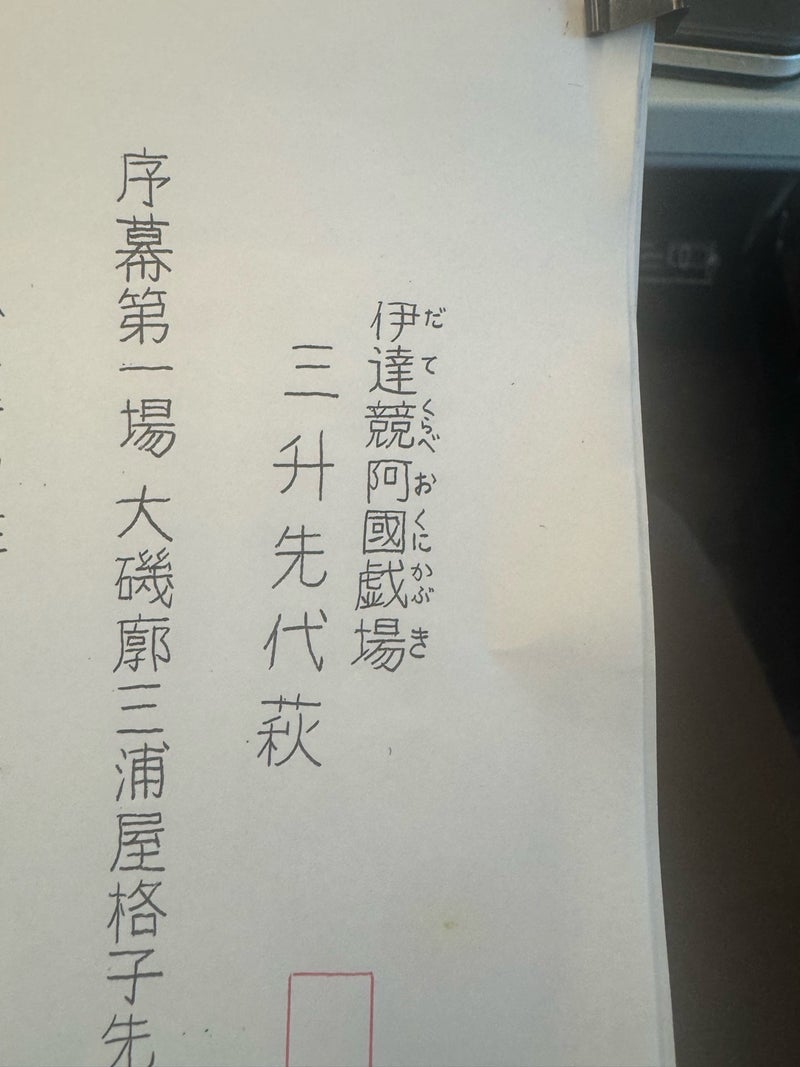 伊達競阿國戯場
だてくらべおくにかぶき
三升先代萩
序幕第一場 大磯廓三浦屋格子先